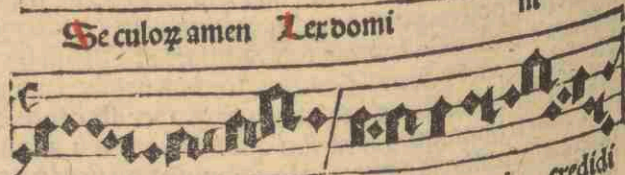 Seculoꝝ amen Lex domi
credidi